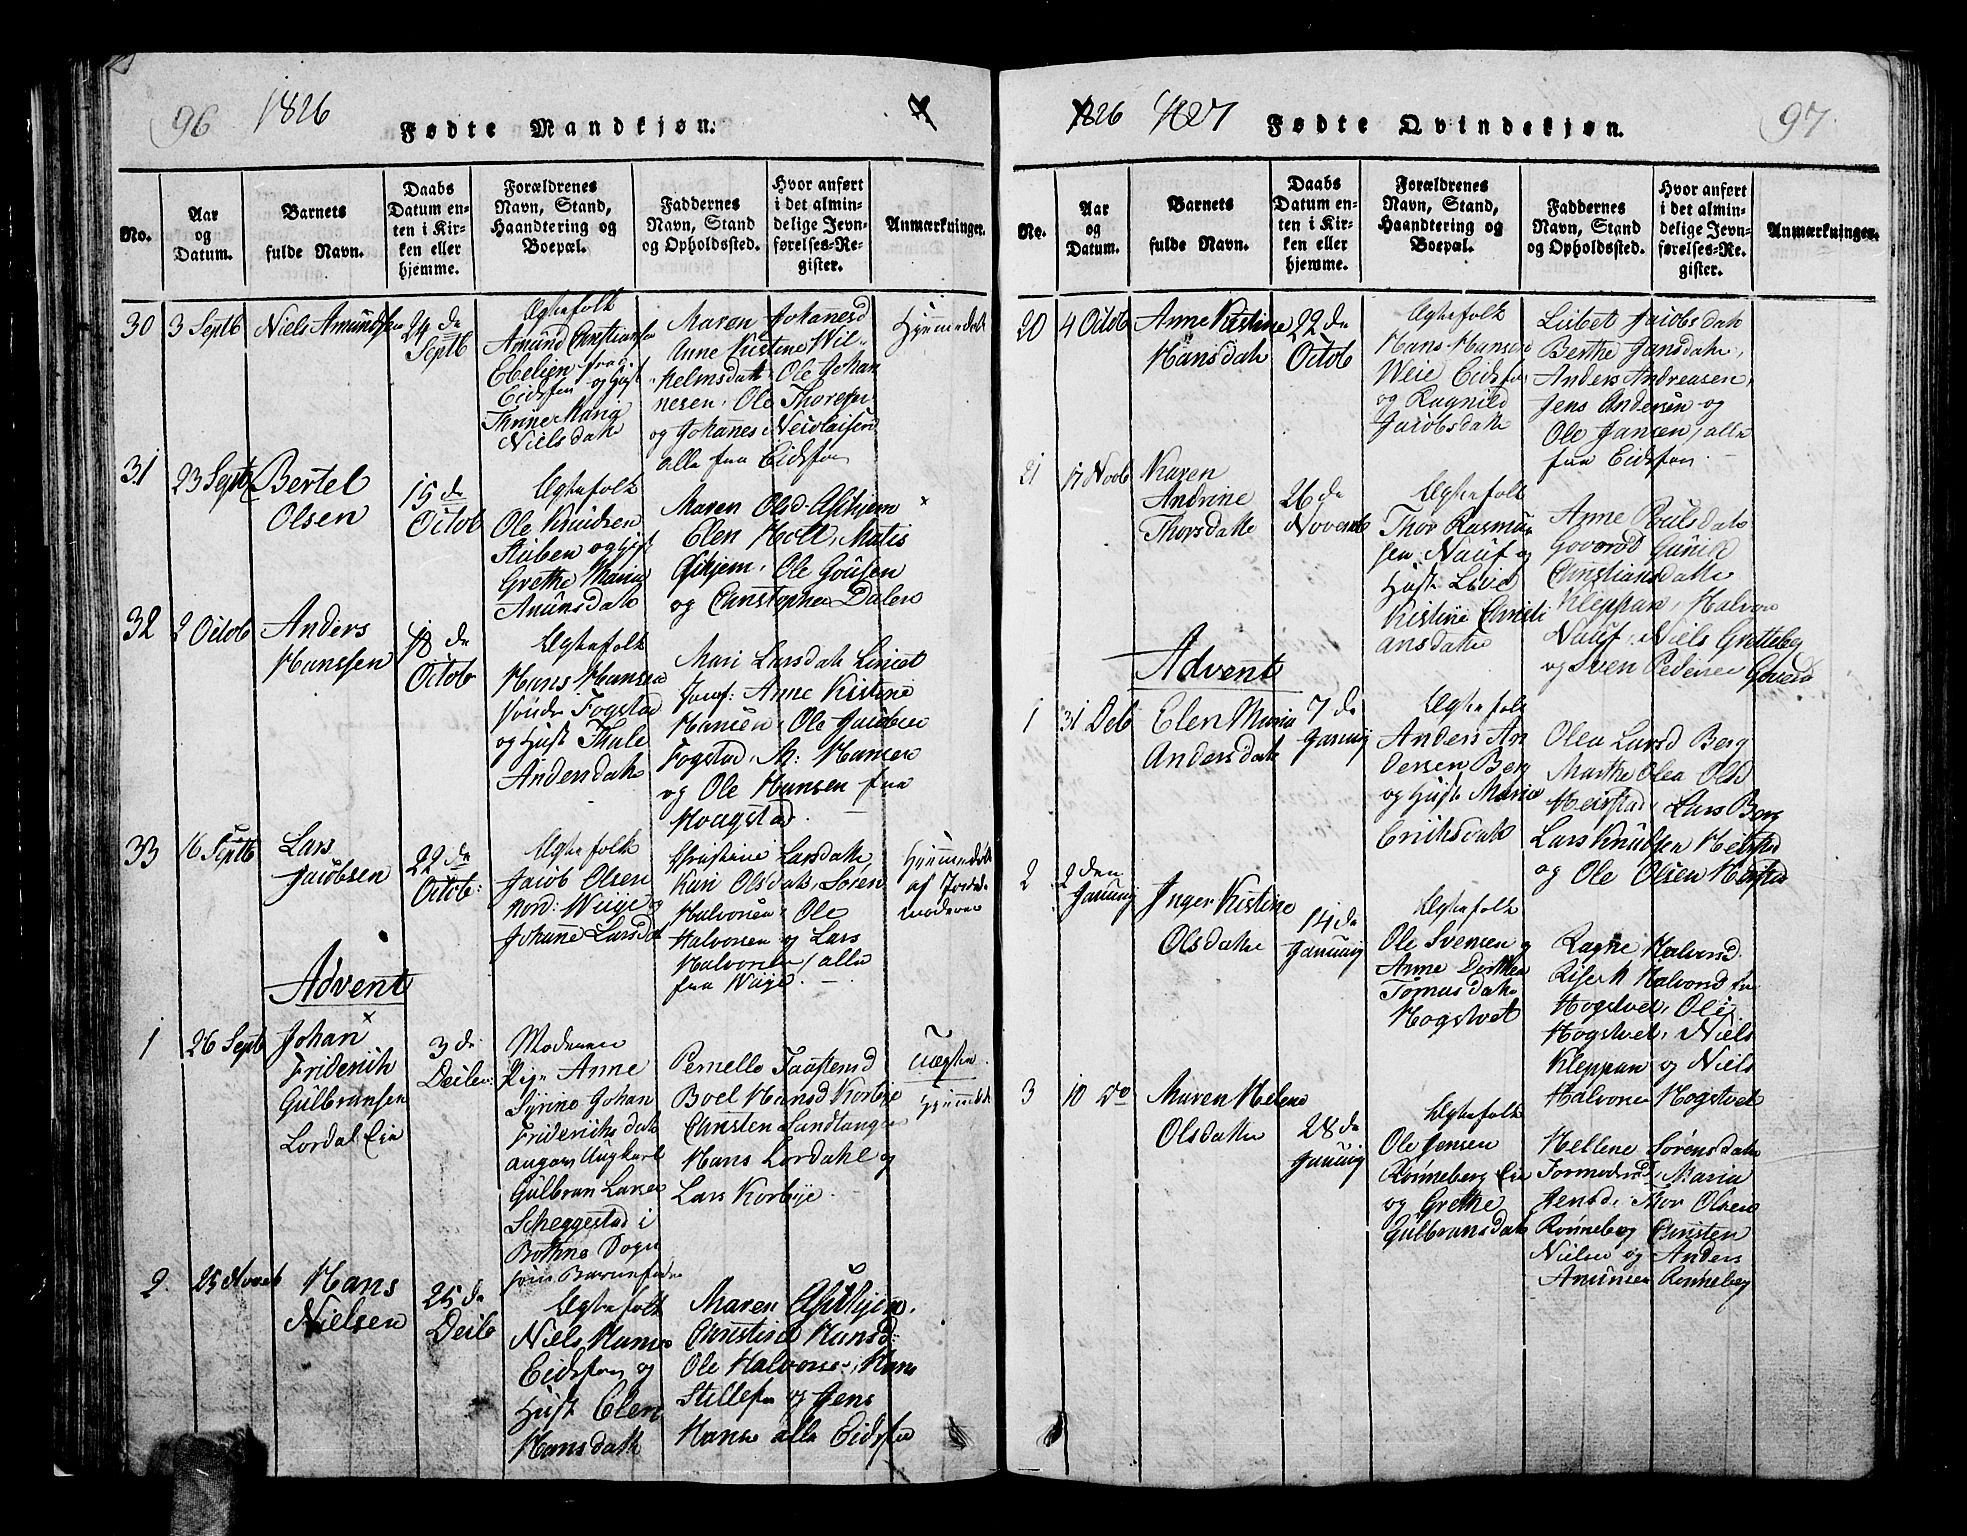 96 1826
Fødte Mandkjøn.
No.
Aar
og
Datum.
Barnets
fulde Navn.
Daabs
Datum en-
ten i Kir-
ken eller
hjemme.
Forældrenes
Navn, Stand,
Haandtering og
Boepæl.
Faddernes
Navn, Stand
og Opholdssted.
Hvor anført
i det almin-
delige Jevn-
førelses-Re-
gister.
Anmærkninger.
30
3 Septb
Niels Amundsen
24 de
Septb
Ægtefolk
Amund Christiansen
fra
Eidsfos og Hust
Nielsdatt
Maren Johanesd
Anne Kistine Wil-
helmsdatt Ole Johan
nesen, Ole Thoresen
og Johanes Nicolaisen
alle fra Eidsfos
Hjemmedøbt
31
23 Septb
Bertel
Olsen
15 de
Octob
Ægtefolk
Ole Knudsen
og Hust
Grethe Maria
Amunsdatt
Maren Olsd Askhjem
Elen Holt, Matis
Askhjem, Ole
og Christopher Dalen
×
32
2 Octob
Anders
Hanssen
18 de
Octob
Ægtefolk
Hans Hansen
Fogstad
og Hust Thale
Andersdatt
Mari Larsdatt
Jomf: Anne Kistine
Hansen, Ole Jacobsen
Fogstad, M: Hansen
og Ole Hansen fra
Hougstad
33
16 Septb
Lars
Jacobsen
22 de
Octob:
Ægtefolk
Jacob Olsen
nord: Weije og
Johanne Larsdat
Christine Larsdatte
Kari Olsdatt, Søren
Halvorsen, Ole
Halvorsen og Lars
Halvorsen, alle
fra Weije.
Hjemmedøbt
af Jorde-
moderen
Advent
1
26 Septb
Johan
Friderich
Gulbransen
Lordal Eie
3 de
Decbr:
Moderen
Pige Anne
Johan
Friderichsdatt
Gulbran Larsen
Scheggestad i
Bothne Sogn
som Barnefader
Pernelle
Boel Hansd Korbye
Christen Sandtangen
Hans Lordahl og
Lars Korbye
Uægte
Hjemmedøbt
2.
25 Novb
Hans
Nielsen
25 de
Decb
Ægtefolk
Niels Hansen
Eidsfos og
Hust Elen
Hansdatt
Maren Askhjem,
Christine Hansd:
Ole Halvorsen, Hans
Stillefsen og Jens
Hansen alle Eidsfos
1826 1827
Fødte Qvindekjøn.
97
No.
Aar
og
Datum.
Barnets
fulde Navn.
Daabs
Datum en-
ten i Kir-
ken eller
hjemme.
Forældrenes
Navn, Stand,
Haandtering og
Boepæl.
Faddernes
Navn, Stand
og Opholdssted.
Hvor anført
i det almin-
delige Jevn-
førelses-Re-
gister.
Anmærkninger.
20
4 Octob
Anne Kistine
Hansdatt
22 de
Octob
Ægtefolk
Hans Hansen
Weie Eidsfos
og Ragnild
Jacobsdatte
Lisbet Jacobsdatt
Berthe Jansdatte,
Anders Andreasen,
Jens Andersen og
Ole Jansen, alle
fra Eidsfos.
21
17 Novb
Karen
Andrine
Thorsdatte
26 de
Novemb
Ægtefolk
Thor Rasmu
sen, Nauf og
Hust
Kistine Christi
ansdatte
Anne Poulsdatt
Goverød Gunild
Christiansdatte
Kleppan, Halvor
Nauf, Niels Gretteberg
og Sven Pedersen Goverød
Advent
1
31 Decb
Elen Maria
Andersdatt
7 de
January
Ægtefolk
Anders An
dersen Berg
og Hust Maria
Eriksdatt
Olea Larsd Berg
Marthe Olea Olsd
Heirstad, Lars Berg
Lars Knudsen Heirstad
og Ole Olsen Heirstad
2
2 den
January
Inger Kistine
Olsdatte
14 de
January
Ægtefolk
Ole Svensen og
Anne Dorthea
Tomasdatt
Hogstvet
Ragne Halvorsd.
Halvorsd
Hogstvet, Ole
Hogstvet, Niels
Kleppan og Niels
Halvorsen Hogstvet
3
10 do
Maren Helene
Olsdatte
28 de
January
Ægtefolk
Ole Jensen
Rønneberg Eie
og Grethe
Gulbransdatt
Hellene Sørensdatt
Formodsrød, Maria
Jensd, Thor Olsen
Rønneberg Christen
Nielsen og Anders
Amunsen Rønneberg